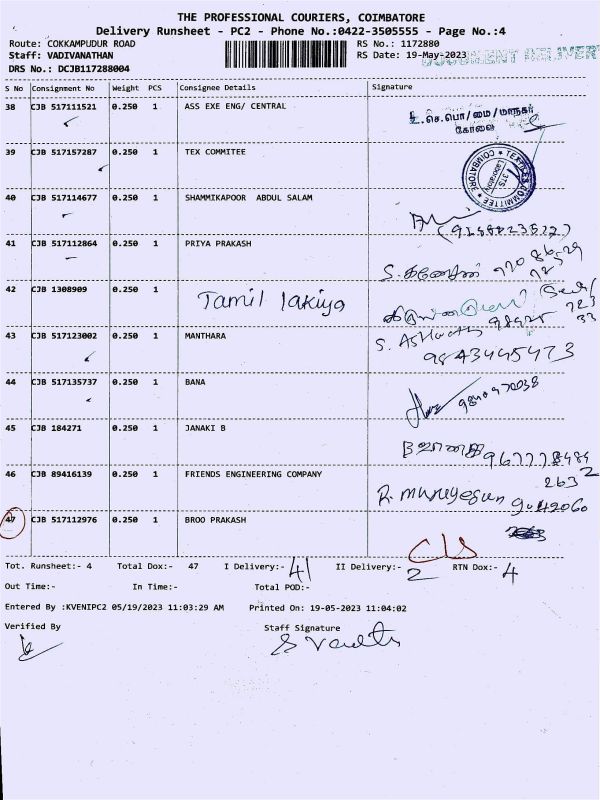 THE PROFESSIONAL COURIERS, COIMBATORE
Delivery Runsheet - PC2 - Phone No.:0422-3505555 - Page No.:4
Route: COKKAMPUDUR ROAD RS No.: 1172880
Staff: VADIVANATHAN RS Date: 19-May-2023 DOCUMENT DELIVERY
DRS No.: DCJB117288004
S No Consignment No Weight PCS Consignee Details Signature
38 CJB 517111521 0.250 1 ASS EXE ENG/ CENTRAL செ.பொ/மை/மாநகர்
கோவை
39 CJB 517157287 0.250 1 TEX COMMITEE TEXTILES COMMITTEE COIMBATORE
40 CJB 517114677 0.250 1 SHAMMIKAPOOR ABDUL SALAM
41 CJB 517112864 0.250 1 PRIYA PRAKASH
42 CJB 1308909 0.250 1 Tamil lakiya
43 CJB 517123002 0.250 1 MANTHARA S. Ashwath
9843445473
44 CJB 517135737 0.250 1 BANA
45 CJB 184271 0.250 1 JANAKI B
46 CJB 89416139 0.250 1 FRIENDS ENGINEERING COMPANY R. Muruyesan
47 CJB 517112976 0.250 1 BROO PRAKASH
Tot. Runsheet:- 4 Total Dox:- 47 I Delivery:- 41 II Delivery:- 2 RTN Dox:- 4
Out Time:- In Time:- Total POD:-
Entered By :KVENIPC2 05/19/2023 11:03:29 AM Printed On: 19-05-2023 11:04:02
Verified By Staff Signature